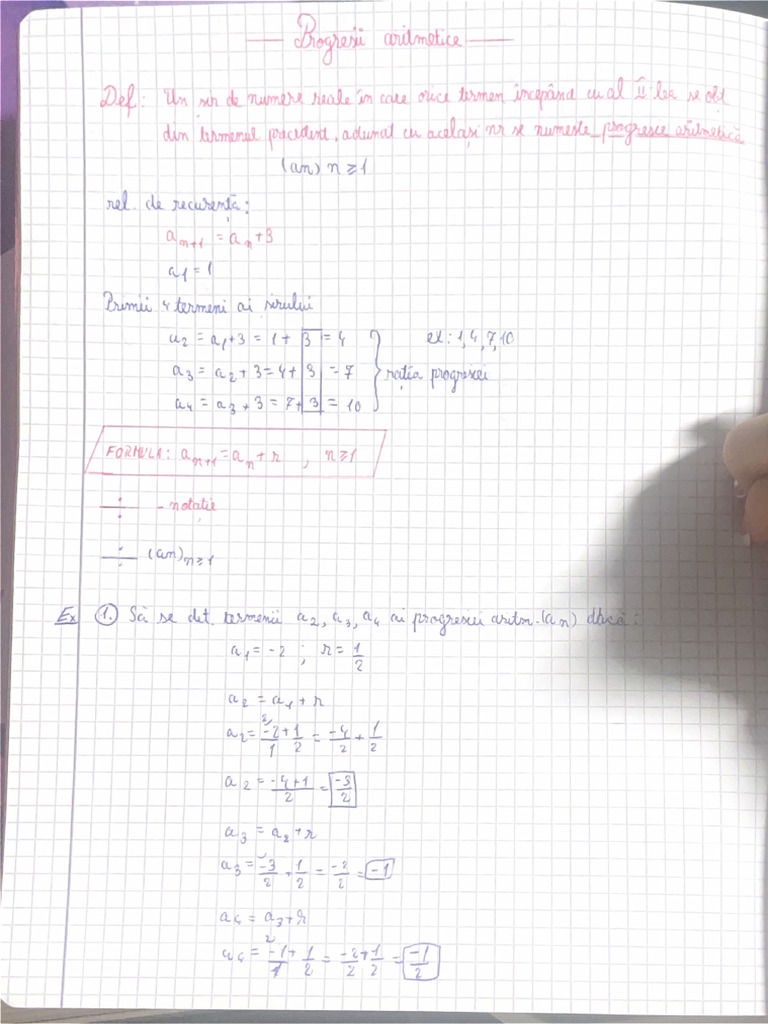 Progresii aritmetice
Def: Un șir de numere reale în care orice termen începând cu al II lea se obt
din termenul precedent, adunat cu același nr se numește progresie aritmetică
(an) n ≥ 1
rel. de recurență:
a_{n+1} = a_n + 3
a1 = 1
Primii 4 termeni ai șirului
a2 = a1 + 3 = 1 + 3 = 4 ex: 1, 4, 7, 10
a3 = a2 + 3 = 4 + 3 = 7 rația progresiei
a4 = a3 + 3 = 7 + 3 = 10
FORMULA: a_{n+1} = a_n + r , n ≥ 1
÷ - notatie
÷ (an)_{n ≥ 1}
Ex 1. Să se det. termenii a2, a3, a4 ai progresiei aritm. (an) dacă:
a1 = -2 ; r = 1/2
a2 = a1 + r
a2 = -2/1 + 1/2 = -4/2 + 1/2
a2 = -4+1/2 = -3/2
a3 = a2 + r
a3 = -3/2 + 1/2 = -2/2 = -1
a4 = a3 + r
a4 = -1/1 + 1/2 = -2/2 + 1/2 = -1/2